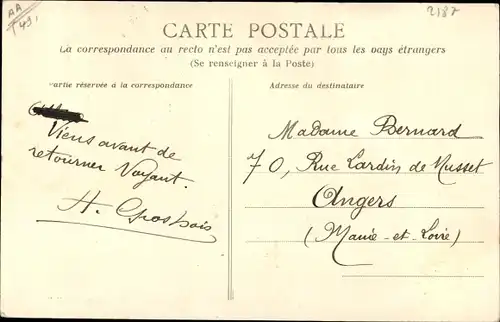 AA
49.
2187
CARTE POSTALE
La correspondance au recto n'est pas acceptée par tous les pays étrangers
(Se renseigner à la Poste)
Partie réservée à la correspondance
Adresse du destinataire
Viens avant de
retourner Voyant.
H. Grosbois
Madame Bernard
70, Rue Lardin de Musset
Angers
(Maine-et-Loire)